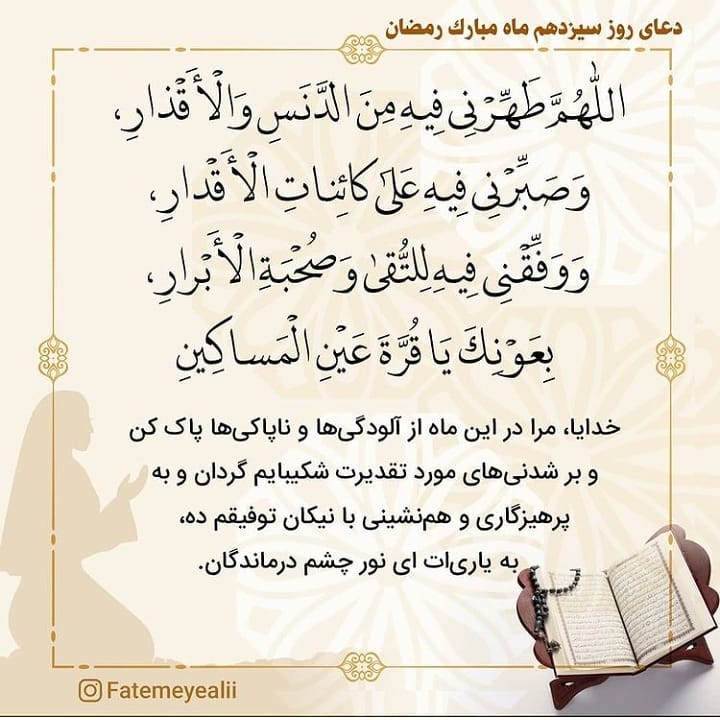 دعای روز سیزدهم ماه مبارک رمضان
اللّٰهُمَّ طَهِّرْنِي فِيهِ مِنَ الدَّنَسِ وَالْأَقْذارِ،
وَصَبِّرْنِي فِيهِ عَلىٰ كائِناتِ الْأَقْدارِ،
وَوَفِّقْنِي فِيهِ لِلتُّقىٰ وَصُحْبَةِ الْأَبْرارِ،
بِعَوْنِكَ يَا قُرَّةَ عَيْنِ الْمَساكِينِ
خدایا، مرا در این ماه از آلودگی‌ها و ناپاکی‌ها پاک کن
و بر شدنی‌های مورد تقدیرت شکیبایم گردان و به
پرهیزگاری و هم‌نشینی با نیکان توفیقم ده،
به یاری‌ات ای نور چشم درماندگان.
Fatemeyealii